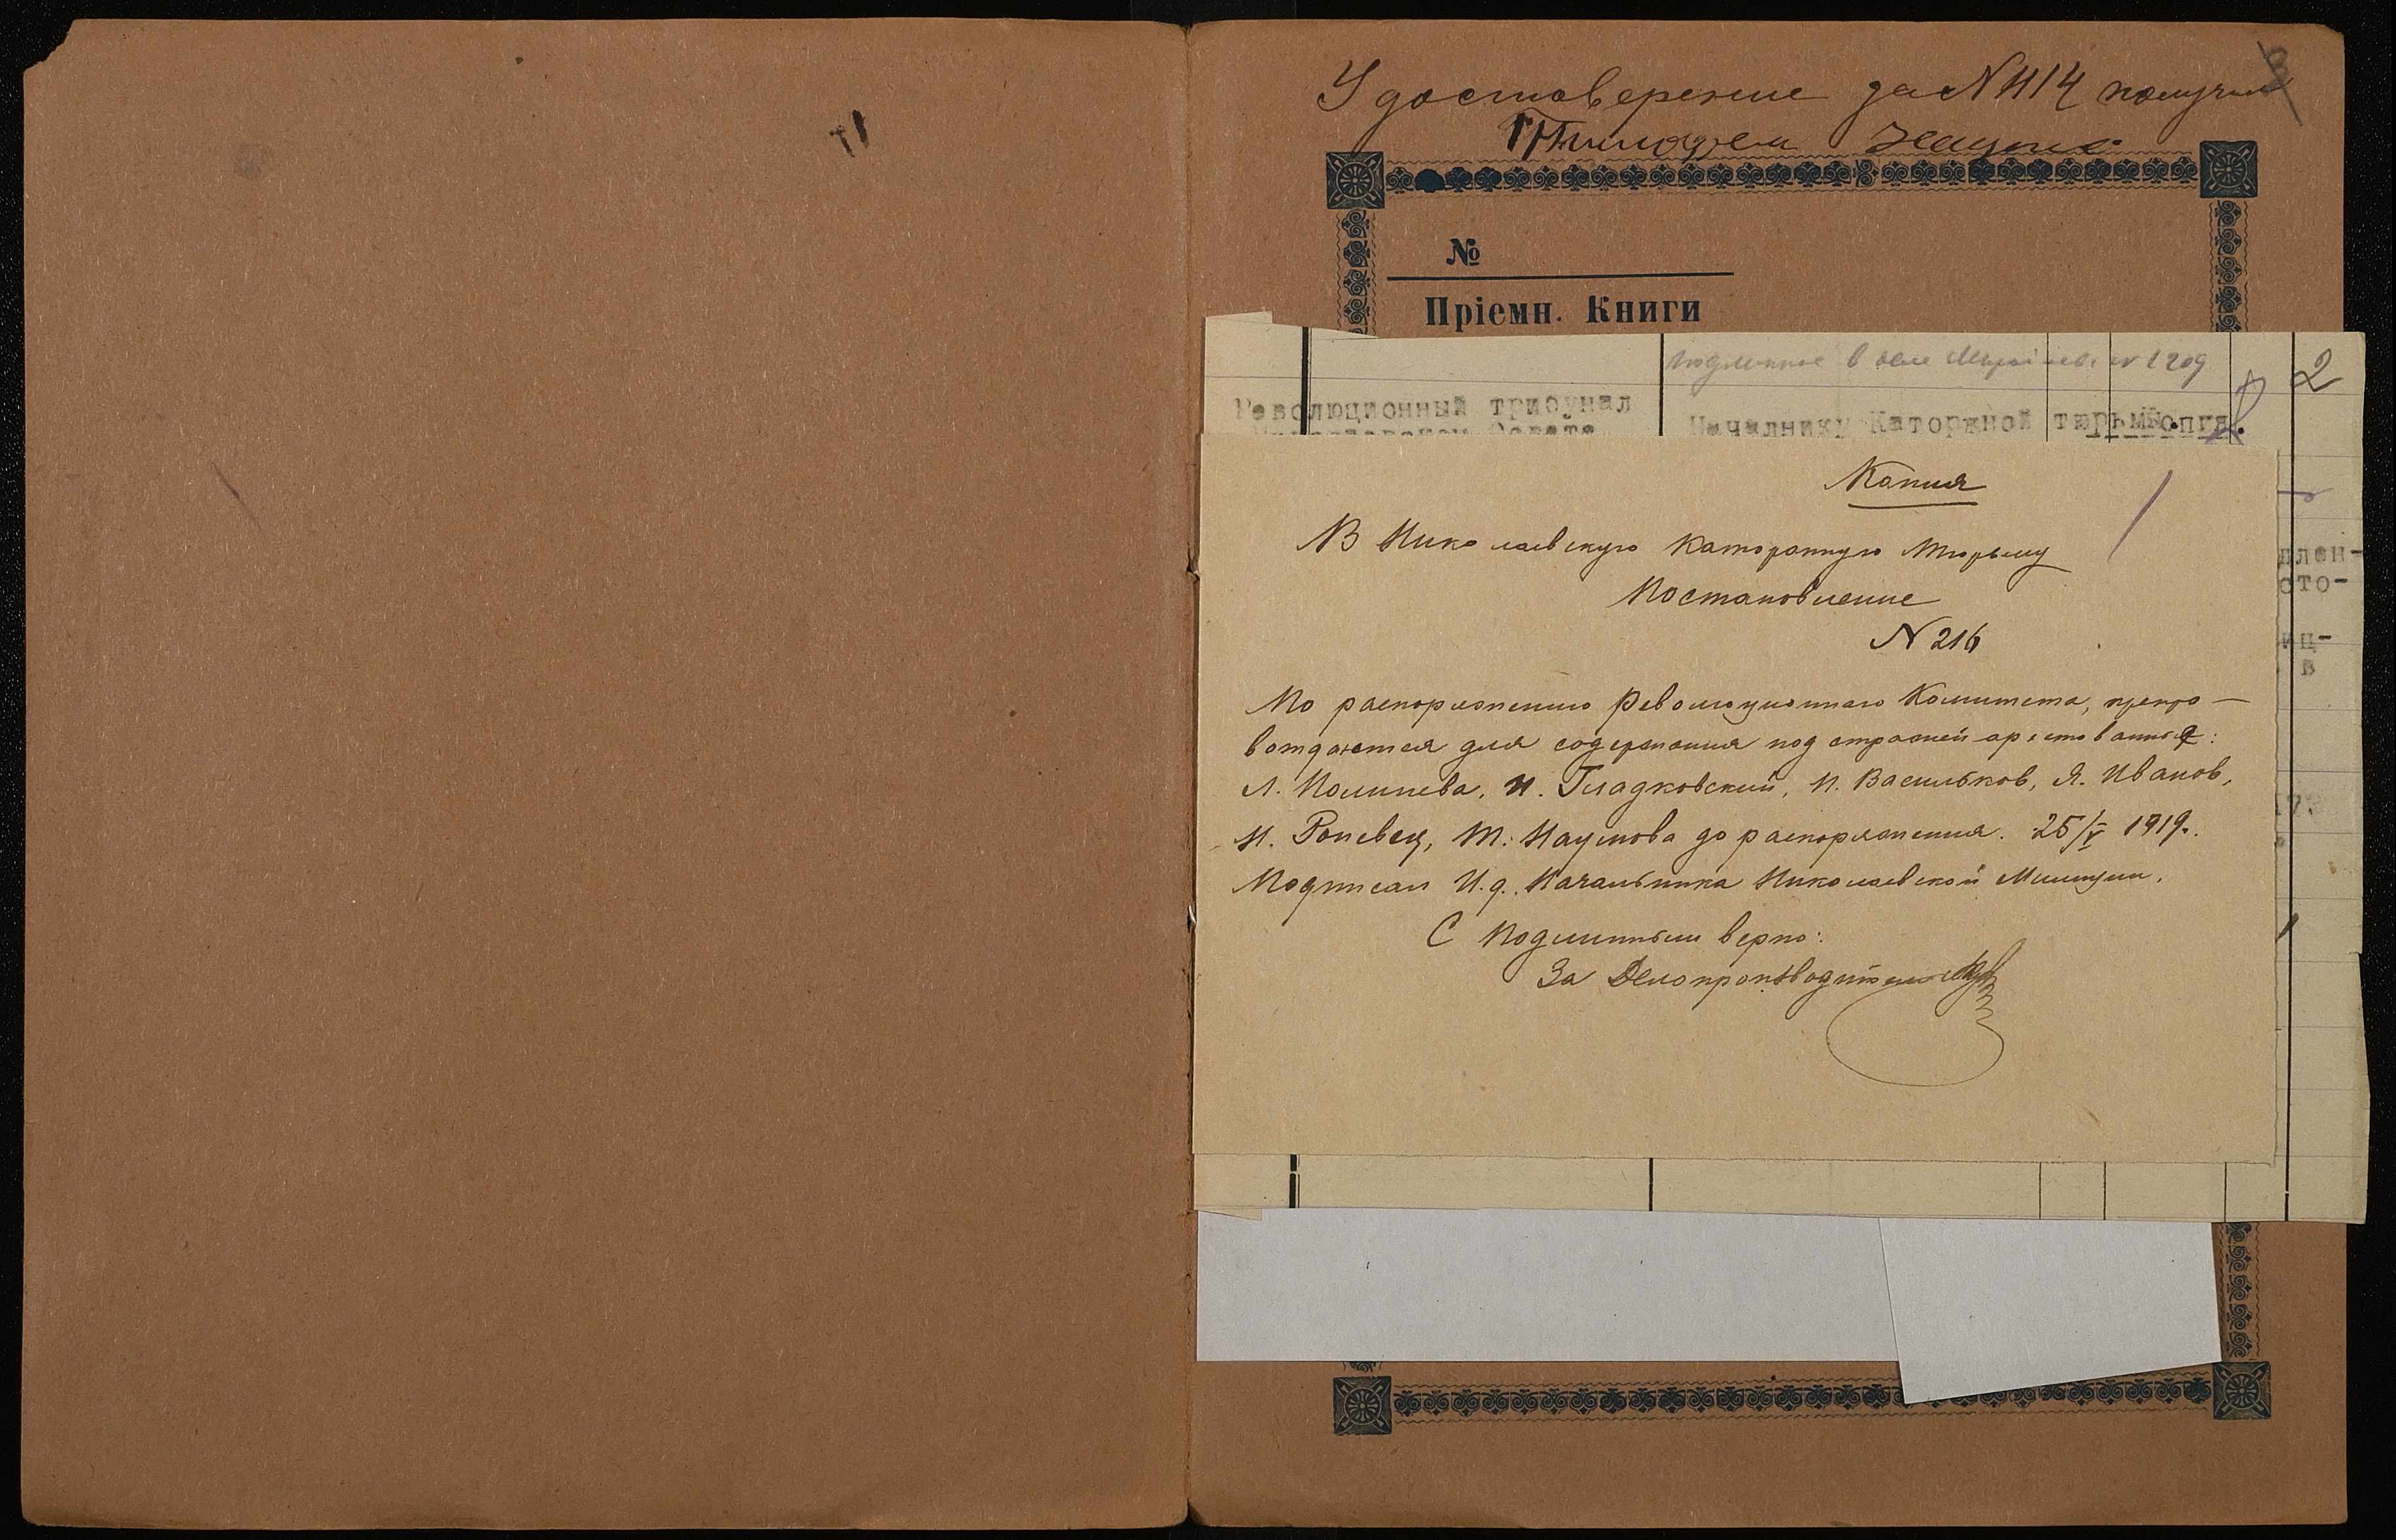 Удостоверение за N 1114 получил
№
Пріемн. Книги
2
Революционный трибунал
Начальнику Каторжной тюрьмы.
Копия.
Копия
1
В Николаевскую Каторжную Тюрьму
Постановление
N 216
По распоряжению Революционнаго Комитета, препро-
вождаются для содержания под стражей арестованные:
Л. Полипева, И. Гладковский, И. Васильков, Я. Иванов,
И. Роневец, Т. Наумова до распоряжения. 25/V 1919.
Подписал И.д. Начальника Николаевской Милиции.
С подлинным верно:
За Делопроизводителя
плен-
сто-
иц-
в